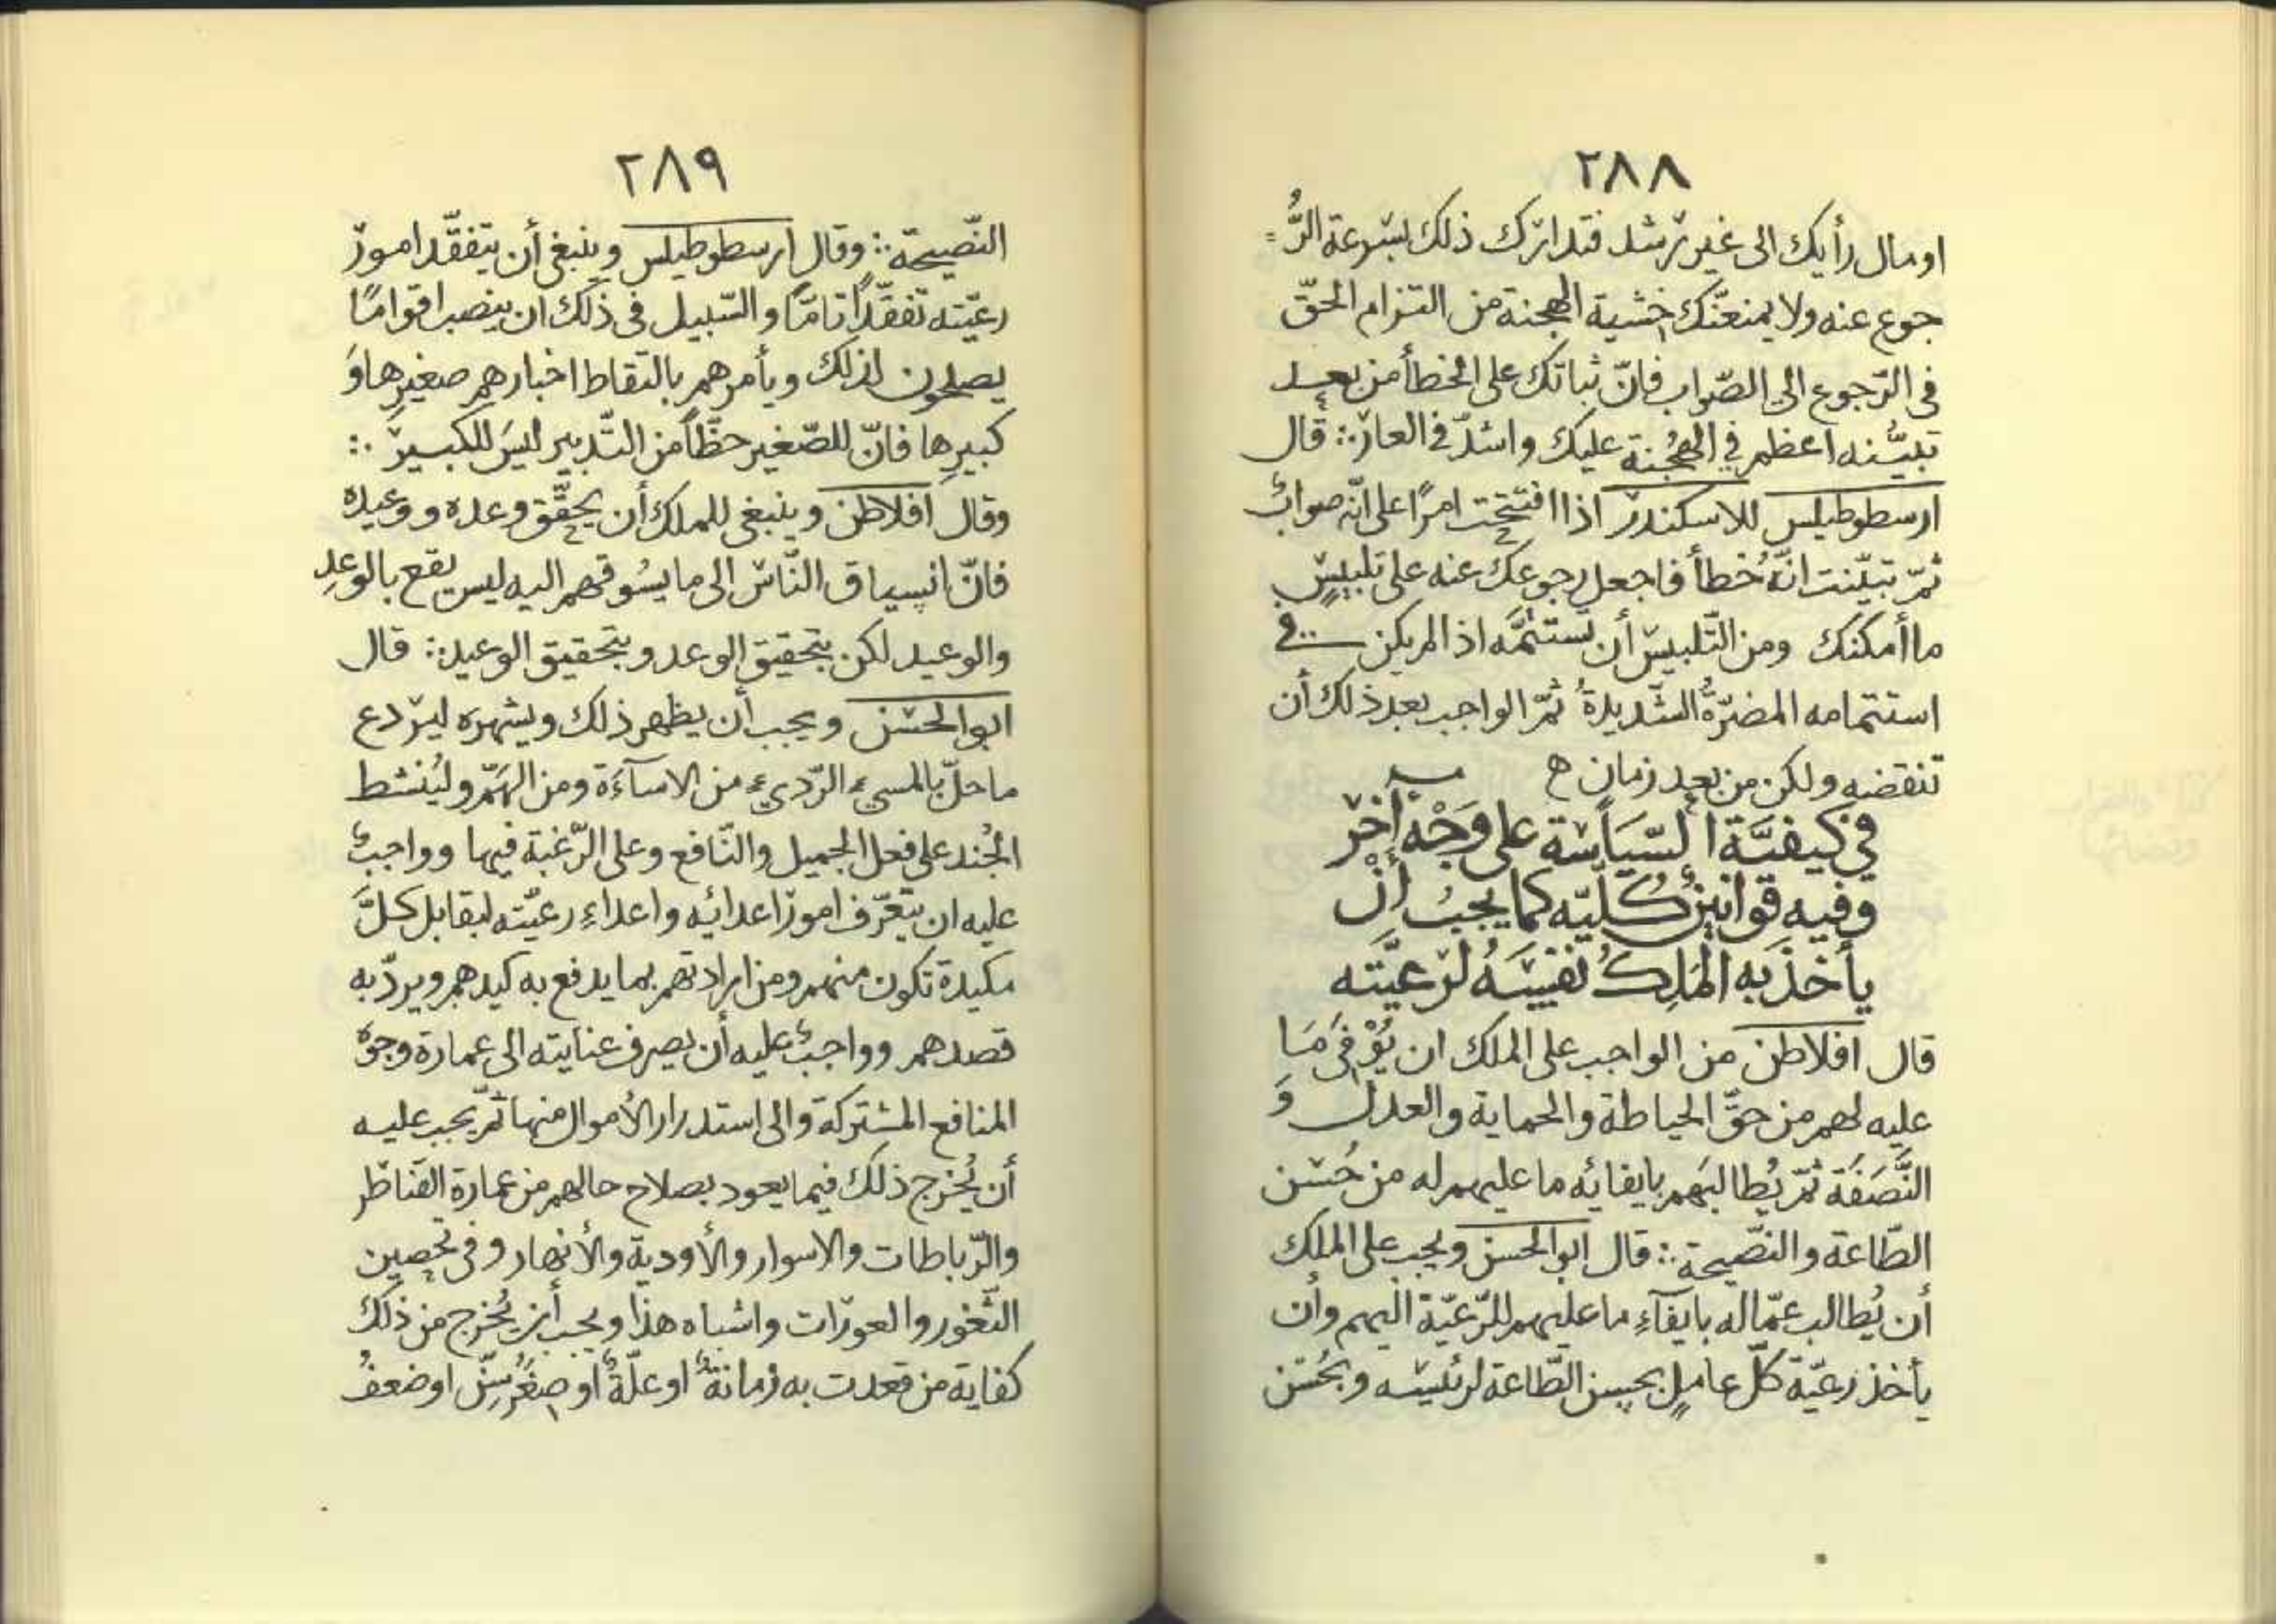 ٢٨٨
او مال رأيك الى غير رشد فتدارك ذلك بسرعة الرُّ=
جوع عنه ولا يمنعنّك خشية الهجنة من التزام الحقّ
فى الرّجوع الى الصّواب فانّ ثباتك على الخطأ من بعد
تبيُّنه اعظم في الهُجْنة عليك واشدّ في العار ∴ قال
ارسطوطيلس للاسكندر اذا افتتحت امرًا على انّه صوابٌ
ثمّ تبيّنت انّهُ خطأ فاجعل رجوعك عنه على تلبيسٍ
ما أمكنك ومن التّلبيس أن تستتمَّه اذ المريكن فى
استتمامه المضرّةُ الشّديدةُ ثمّ الواجب بعد ذلك أن
تنقضه ولكن من بعد زمان ه
في كيفيَّة السّيَاسَة على وَجْهٍ آخَر
وفيه قوانينٌ كُلّيّه كما يجبُ أنْ
يأخذَ به المَلِكُ نفسَهُ لرعيَّته
قال افلاطن من الواجب على الملك ان يُوْفِىَ مَا
عليه لهم من حقّ الحياطة والحماية والعدل وَ
النَّصَفَة ثمّ يُطالبَهم بايفائه ما عليهم له من حُسْن
الطّاعة والنّصيحة ∴ قال ابوالحسن ويجب على الملك
أن يُطالب عمّاله بايفآءِ ما عليهم للرّعيّة اليهم وأن
يأخذ رعيّة كلّ عاملٍ بحسن الطّاعة لرئيسه وبحُسْن
٢٨٩
النّصيحة ∴ وقال ارسطوطيلس وينبغى أن يتفقّد امور
رعيّته تفقّدًا تامًّا والسّبيل فى ذلك ان ينصب اقوامًا
يصلحون لذلك ويأمرهم بالتقاط اخبارهم صغيرِها وَ
كبيرِها فانّ للصّغير حظًّا من التّدبير ليسَ للكبير ∴
وقال افلاطن وينبغى للملك أن يحقّق وعده ووعيده
فانّ انسياق النّاس الى ما يسُوقهم اليه ليس يقع بالوعدِ
والوعيد لكن بتحقيق الوعد وبتحقيق الوعيد ∴ قال
ابوالحسن ويجب أن يظهر ذلك ويشهره ليردع
ما حلّ بالمسيء الرّديء من الاسآءَة ومن الهَمّ وليُنشط
الجُند على فعل الجميل والنّافع وعلى الرّغبة فيها وواجبٌ
عليه ان يتعرّف امور اعدائِه واعداءِ رعيّته ليقابل كلّ
مكيدة تكون منهم ومن ارادتهم بما يدفع به كيدهم ويردّ به
قصدهم وواجبٌ عليه أن يصرف عنايته الى عمارة وجوه
المنافع المشتركة والى استدرار الأموال منها ثمّ يجب عليه
أن يُخرج ذلك فيما يعود بصلاح حالهم من عمارة القناطر
والرّباطات والاسوار والأودية والأنهار وفى تحصين
الثّغور والعورات واشباه هذا ويجب أن يُخرج من ذلك
كفاية من قعدت به زمانةٌ او علّةٌ او صِغَرُ سِنّ او ضعفُ